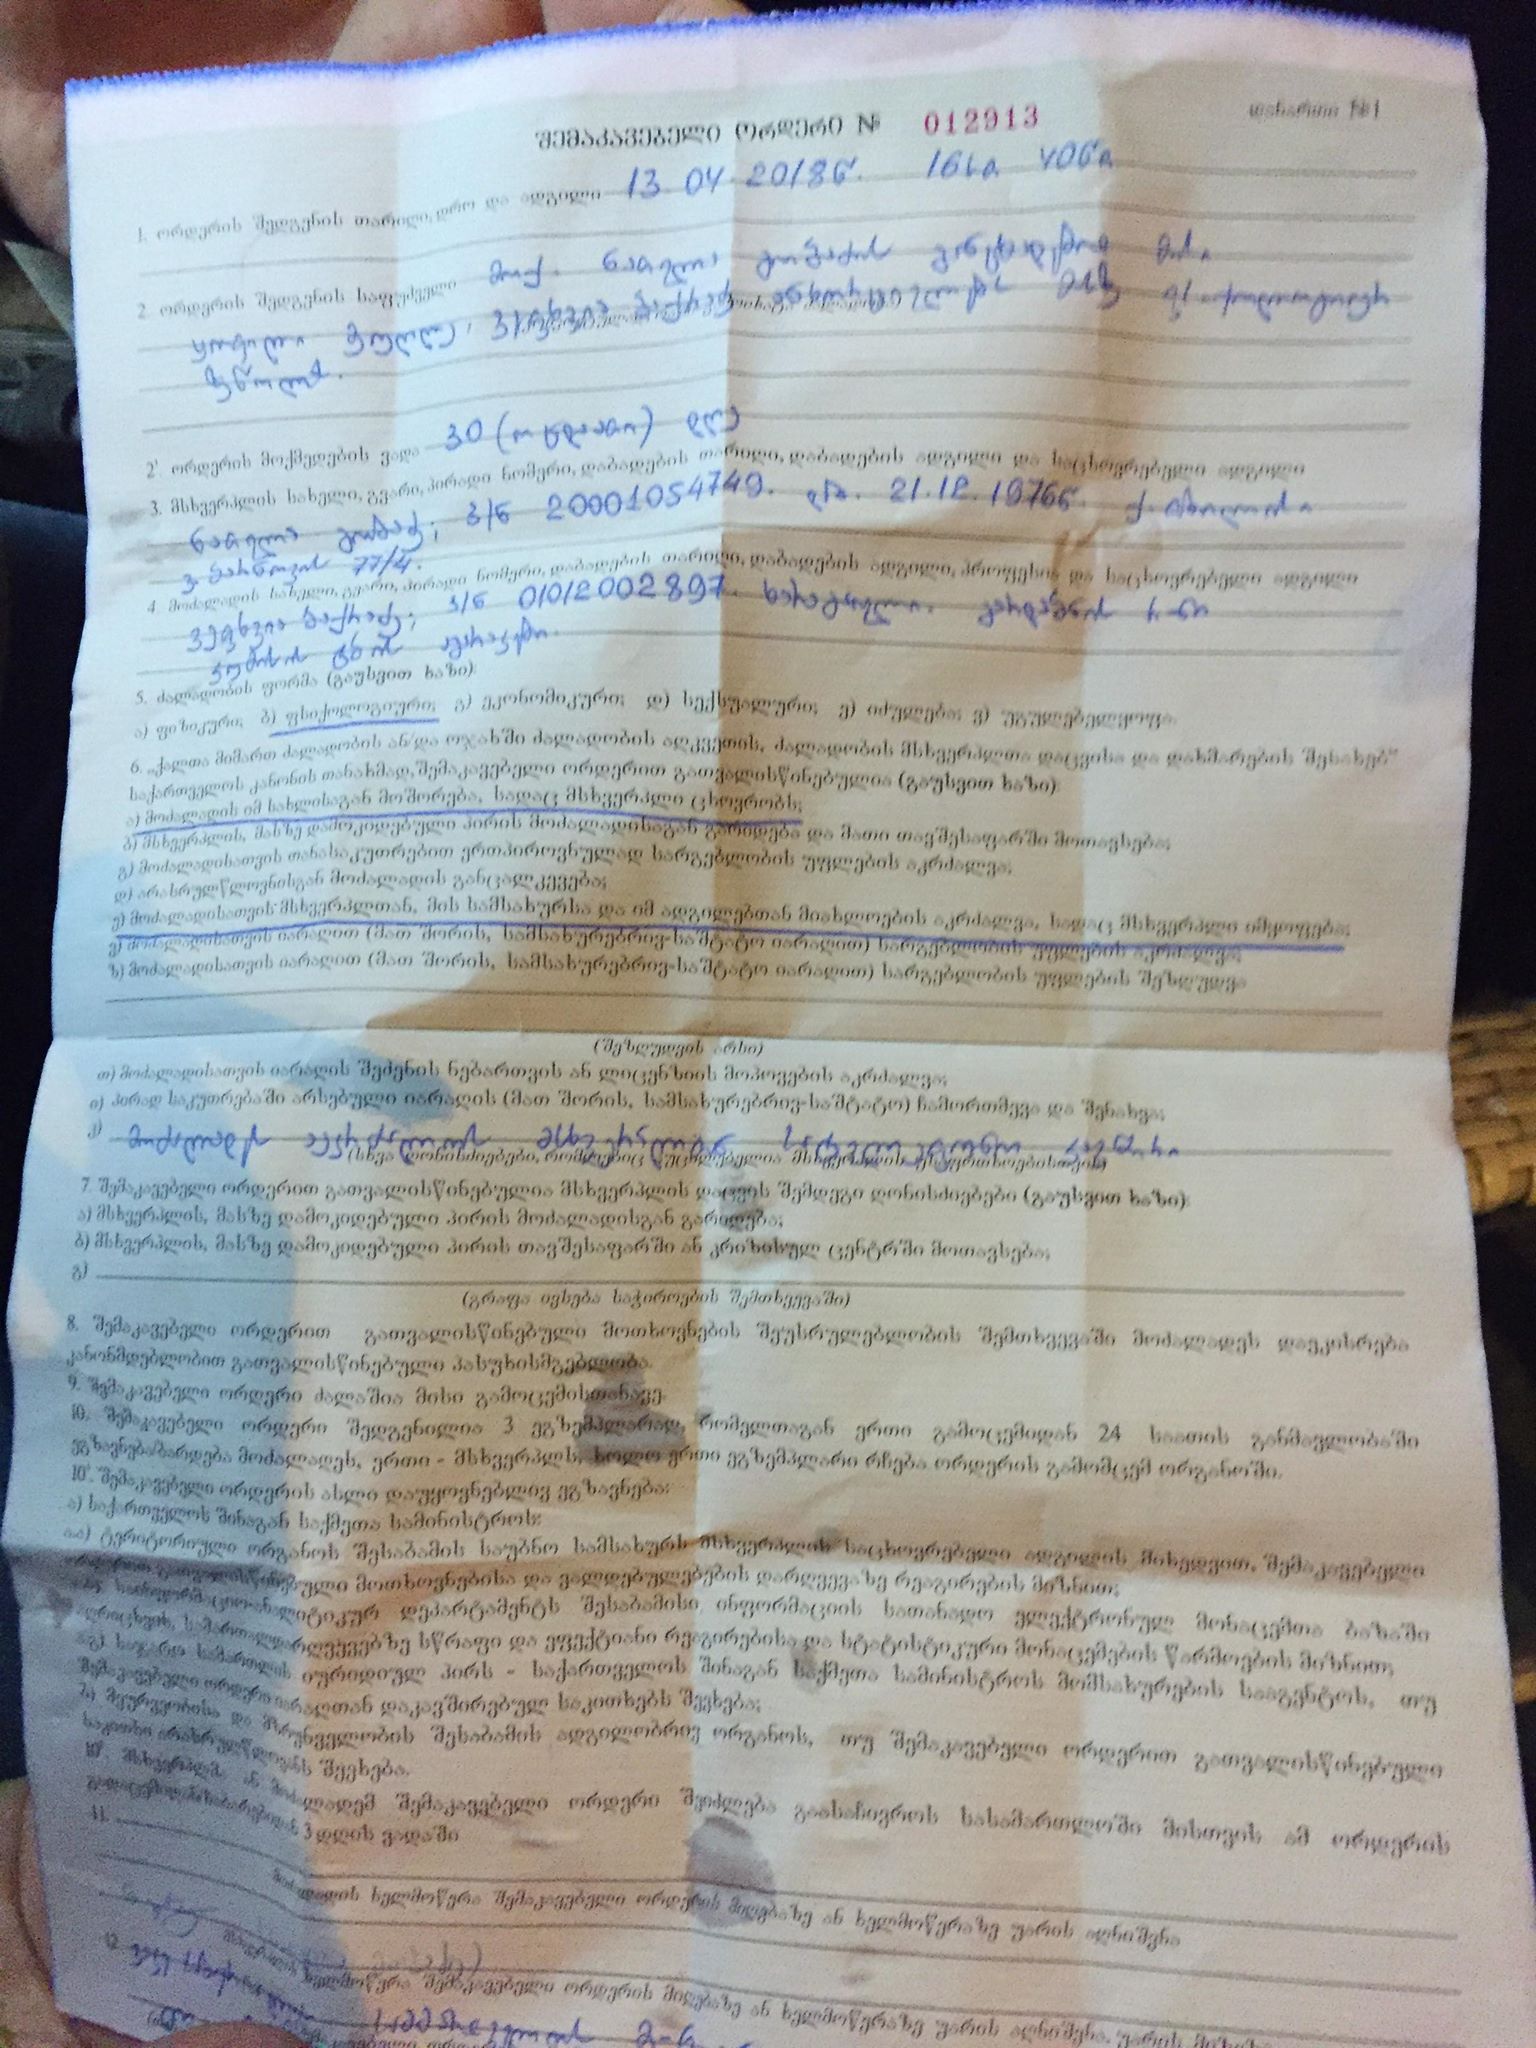 დანართი №1
შემაკავებელი ორდერი № 012913
1. ორდერის შედგენის თარიღი, დრო და ადგილი 13 04 2018წ.
2. ორდერის შედგენის საფუძველი მოქ. ნათელა
ყოფილი მეუღლე,
2¹. ორდერის მოქმედების ვადა 30 (ოცდაათი) დღე
3. მსხვერპლის სახელი, გვარი, პირადი ნომერი, დაბადების თარიღი, დაბადების ადგილი და საცხოვრებელი ადგილი
ნათელა პ/ნ 20001054749. დაბ. 21.12.1976წ. ქ. თბილისი
77/4.
4. მოძალადის სახელი, გვარი, პირადი ნომერი, დაბადების თარიღი, დაბადების ადგილი, პროფესია და საცხოვრებელი ადგილი
პ/ნ 01012002897.
5. ძალადობის ფორმა (გაუსვით ხაზი):
ა) ფიზიკური; ბ) ფსიქოლოგიური; გ) ეკონომიკური; დ) სექსუალური; ე) იძულება; ვ) უგულებელყოფა.
6. „ქალთა მიმართ ძალადობის ან/და ოჯახში ძალადობის აღკვეთის, ძალადობის მსხვერპლთა დაცვისა და დახმარების შესახებ“
საქართველოს კანონის თანახმად, შემაკავებელი ორდერით გათვალისწინებულია (გაუსვით ხაზი):
ა) მოძალადის იმ სახლისაგან მოშორება, სადაც მსხვერპლი ცხოვრობს;
ბ) მსხვერპლის, მასზე დამოკიდებული პირის მოძალადისაგან გარიდება და მათი თავშესაფარში მოთავსება;
გ) მოძალადისათვის თანასაკუთრებით ერთპიროვნულად სარგებლობის უფლების აკრძალვა;
დ) არასრულწლოვნისგან მოძალადის განცალკევება;
ე) მოძალადისათვის მსხვერპლთან, მის სამსახურსა და იმ ადგილებთან მიახლოების აკრძალვა, სადაც მსხვერპლი იმყოფება;
ვ) მოძალადისათვის იარაღით (მათ შორის, სამსახურებრივ-საშტატო იარაღით) სარგებლობის უფლების აკრძალვა;
ზ) მოძალადისათვის იარაღით (მათ შორის, სამსახურებრივ-საშტატო იარაღით) სარგებლობის უფლების შეზღუდვა
(შეზღუდვის არსი)
თ) მოძალადისათვის იარაღის შეძენის ნებართვის ან ლიცენზიის მოპოვების აკრძალვა;
ი) პირად საკუთრებაში არსებული იარაღის (მათ შორის, სამსახურებრივ-საშტატო) ჩამორთმევა და შენახვა;
კ) მოძალადეს აეკრძალოს მსხვერპლთან სატელეფონო კავშირი
(სხვა ღონისძიებები, რომლებიც აუცილებელია მსხვერპლის უსაფრთხოებისთვის)
7. შემაკავებელი ორდერით გათვალისწინებულია მსხვერპლის დაცვის შემდეგი ღონისძიებები (გაუსვით ხაზი):
ა) მსხვერპლის, მასზე დამოკიდებული პირის მოძალადისგან გარიდება;
ბ) მსხვერპლის, მასზე დამოკიდებული პირის თავშესაფარში ან კრიზისულ ცენტრში მოთავსება;
გ)
(გრაფა ივსება საჭიროების შემთხვევაში)
8. შემაკავებელი ორდერით გათვალისწინებული მოთხოვნების შეუსრულებლობის შემთხვევაში მოძალადეს დაეკისრება
კანონმდებლობით გათვალისწინებული პასუხისმგებლობა.
9. შემაკავებელი ორდერი ძალაშია მისი გამოცემისთანავე.
10. შემაკავებელი ორდერი შედგენილია 3 ეგზემპლარად, რომელთაგან ერთი გამოცემიდან 24 საათის განმავლობაში
ეგზავნება/ბარდება მოძალადეს, ერთი - მსხვერპლს, ხოლო ერთი ეგზემპლარი რჩება ორდერის გამომცემ ორგანოში.
10¹. შემაკავებელი ორდერის ასლი დაუყოვნებლივ ეგზავნება:
ა) საქართველოს შინაგან საქმეთა სამინისტროს:
ა.ა) ტერიტორიული ორგანოს შესაბამის საუბნო სამსახურს მსხვერპლის საცხოვრებელი ადგილის მიხედვით, შემაკავებელი
ორდერით გათვალისწინებული მოთხოვნებისა და ვალდებულებების დარღვევაზე რეაგირების მიზნით;
ა.ბ) საინფორმაციო-ანალიტიკურ დეპარტამენტს შესაბამისი ინფორმაციის სათანადო ელექტრონულ მონაცემთა ბაზაში
აღრიცხვის, სამართალდარღვევებზე სწრაფი და ეფექტიანი რეაგირებისა და სტატისტიკური მონაცემების წარმოების მიზნით;
ა.გ) საჯარო სამართლის იურიდიულ პირს - საქართველოს შინაგან საქმეთა სამინისტროს მომსახურების სააგენტოს, თუ
შემაკავებელი ორდერი იარაღთან დაკავშირებულ საკითხებს შეეხება;
ბ) მეურვეობისა და მზრუნველობის შესაბამის ადგილობრივ ორგანოს, თუ შემაკავებელი ორდერით გათვალისწინებული
საკითხი არასრულწლოვანს შეეხება.
10². მსხვერპლმა ან მოძალადემ შემაკავებელი ორდერი შეიძლება გაასაჩივროს სასამართლოში მისთვის ამ ორდერის
გადაცემიდან/ჩაბარებიდან 3 დღის ვადაში
11.
მოძალადის ხელმოწერა შემაკავებელი ორდერის მიღებაზე ან ხელმოწერაზე უარის აღნიშვნა
12.
ხელმოწერა შემაკავებელი ორდერის მიღებაზე ან ხელმოწერაზე უარის აღნიშვნა,